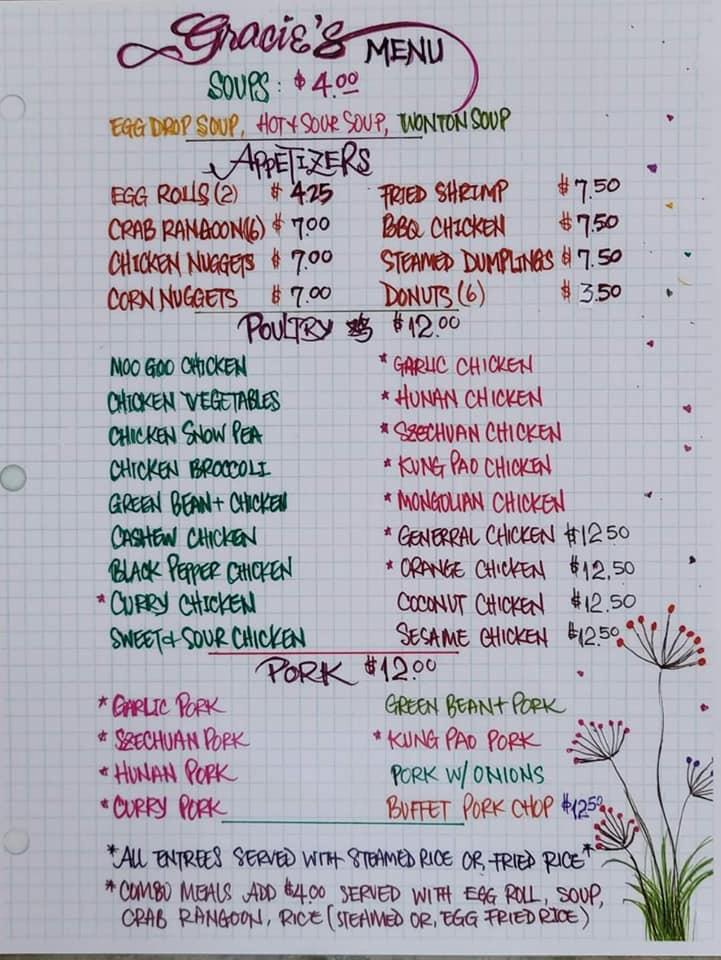 Gracie's MENU
SOUPS: $4.00
EGG DROP SOUP, HOT & SOUR SOUP, WONTON SOUP
APPETIZERS
EGG ROLLS (2) $ 4.25 FRIED SHRIMP $7.50
CRAB RANGOON(6) $ 7.00 BBQ CHICKEN $7.50
CHICKEN NUGGETS $ 7.00 STEAMED DUMPLINGS $7.50
CORN NUGGETS $ 7.00 DONUTS (6) $ 3.50
POULTRY $12.00
MOO GOO CHICKEN * GARLIC CHICKEN
CHICKEN VEGETABLES * HUNAN CHICKEN
CHICKEN SNOW PEA * SZECHUAN CHICKEN
CHICKEN BROCCOLI * KUNG PAO CHICKEN
GREEN BEAN + CHICKEN * MONGOLIAN CHICKEN
CASHEW CHICKEN * GENERRAL CHICKEN $12.50
BLACK PEPPER CHICKEN * ORANGE CHICKEN $12.50
* CURRY CHICKEN COCONUT CHICKEN $12.50
SWEET & SOUR CHICKEN SESAME CHICKEN $12.50
PORK $12.00
* GARLIC PORK GREEN BEAN + PORK
* SZECHUAN PORK * KUNG PAO PORK
* HUNAN PORK PORK W/ ONIONS
* CURRY PORK BUFFET PORK CHOP $12.50
*ALL ENTREES SERVED WITH STEAMED RICE OR, FRIED RICE*
*COMBO MEALS ADD $4.00 SERVED WITH EGG ROLL, SOUP,
CRAB RANGOON, RICE (STEAMED OR, EGG FRIED RICE)